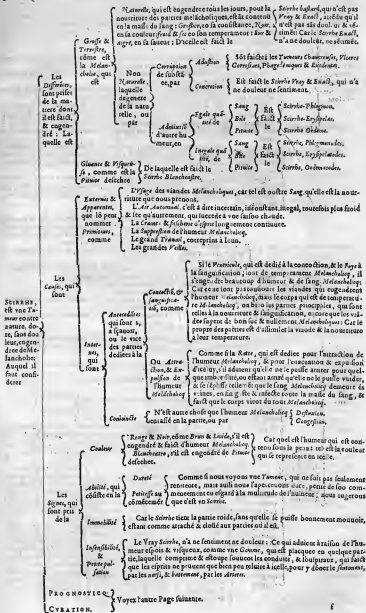 SCIRRHE,
est vne Tumeur
contre
nature, dure,
sans douleur,
engendrée
de Mélancholie:
Auquel il
faut considerer
Les
Differẽces,
sont prises
de la matiere
dont
il est faict,
& engendré :
Laquelle
est
Grosse &
Terrestre,
cõme est
la Mélancholie,
qui
est
Naturelle, qui est engendrée tous les iours, pour la
nourriture des parties mélancholiques, & la contenuë
en la masse du sang : Grosse, en sa consistance, Noire,
en sa couleur, froid & sec en son temperament : Sur &
Aigre, en sa saueur : D'icelle est faict le
Scirrhe bastard, qui n'est pas
Vray & Exact, attẽdu qu'il
n'est pas sãs douleur & sẽtiment :
Car le Scirrhe Exact,
n'a ne douleur, ne sẽtimẽt.
Non
Naturelle,
laquelle
degenere
de la naturelle,
ou
par
Corruption
de substãce,
par
Adustion
Sõt faictes les Tumeurs Chancreuses, Viceres
Corrosiues, Phagedeniques & Exedentes.
Concretion
Est faict le Scirrhe Vray & Exact, qui n'a
ne douleur ne sentiment.
Admistiõ
d'autre humeur,
en
Egale quãtité
de
Sang
Bile
Pituite
Est
faict
le
Scirrhe-Phlegmon,
Scirrhe-Erysipelas,
Scirrhe Oedeme.
Inegale quãtité,
de
Sang
Bile
Pituite
Este
faict
le
Scirrhe, Phlegmoneux,
Scirrhe, Erysipelateux,
Scirrhe, Oedemateux.
Gluante & Visqueuse,
comme est la
Pituite desechée
De laquelle est faict le
Scirrhe Blanchastre.
Les
Causes, qui
sont
Externes &
Apparentes,
que lõ peut
nommer
Primitiues,
comme
L'Vsage des viandes Mélancholiques, car tel est nostre Sang, qu'elle est la nourriture
que nous prenons.
L'Air Automnal, c'est à dire incertain, inconstant, inegal, toutefois plus froid
& sec qu'autrement, qui succede à vne saison chaude.
La Crainte & fascherie d'esprit longuement continuë.
La Suppression de l'humeur Mélancholicq.
Le grand Trauail, corresprins à ieun.
Les grandes Veilles.
Internes,
qui
sont
Antecedẽtes
qui sont à,
sçauoir,
ou le vice
des parties
dediées à la
Concoctiõ, &
sanguification,
comme
Si le Ventricule, qui est dedié à la concoction, & le Foye à
la sanguification, sont de temperament Mélancholicq, il
s'engendre beaucoup d'humeur & de sang Mélancholicq:
Car ce ne sont pas tousiours les viandes qui engendrent
l'humeur Mélancholicq, mais le corps qui est de temperature
Mélancholicq, ou bien les parties principales, qui sont
telles à la nourriture & sanguification, encore que les viandes
soyent de bon suc & nullement Mélancholiques : Car le
propre des parties est d'assimiler la viande & la nourriture
a leur temperature.
Ou Attraction,
& Expulsion
de
l'humeur
Mélãcholicq
Comme si la Rate, qui est dediée pour l'attraction de
l'humeur Mélancholicq, & pour l'euacuation & expulsion
d'icelluy, s'il aduient qu'elle ne le puisse attirer pour quelque
imbecillité, ou estant attiré qu'elle ne le puisse vuider,
&
Conioincte
N'est autre chose que l'humeur Mélancholicq
entassé en la partie, ou par
Defluxion.
Congestion.
Les
Signes, qui
sont pris
de la
Couleur
Rouge & Noir, cõme Brun & Liuide, s'il est
engendré & faict d'humeur Mélancholicq.
Blancheastre, s'il est engendré de Pituite
desechée.
Car quel est l'humeur qui est contenu
sous la peau : tel est la couleur
qui se represente en icelle.
Abilité, qui
cõsiste en la
Dureté
Comme si nous voyons vne Tumeur, qui ne soit pas seulement
Immobilité
Car le Scirrhe tient la partie roide, sans qu'elle se puisse bonnement mouuoir,
estant comme attaché & cloüé aux parties où il est.
Insensibilité,
&
Petite pulsation
Le Vray Scirrhe, n'a ne sentiment ne douleur : Ce qui aduient à raison de l'humeur
espois & visqueux, comme vne Gomme, qui est placquée en quelque partie,
laquelle comprime & estoupe souuent les conduits, & souspiraux, qui faict
que les esprits ne peuuent que bien peu reluire à icelle, pour y dõner le sentiment,
par les nerfs, & battement, par les Arteres.
PROGNOSTICQ:
CVRATION.
Voyez l'autre Page suiuante.
f